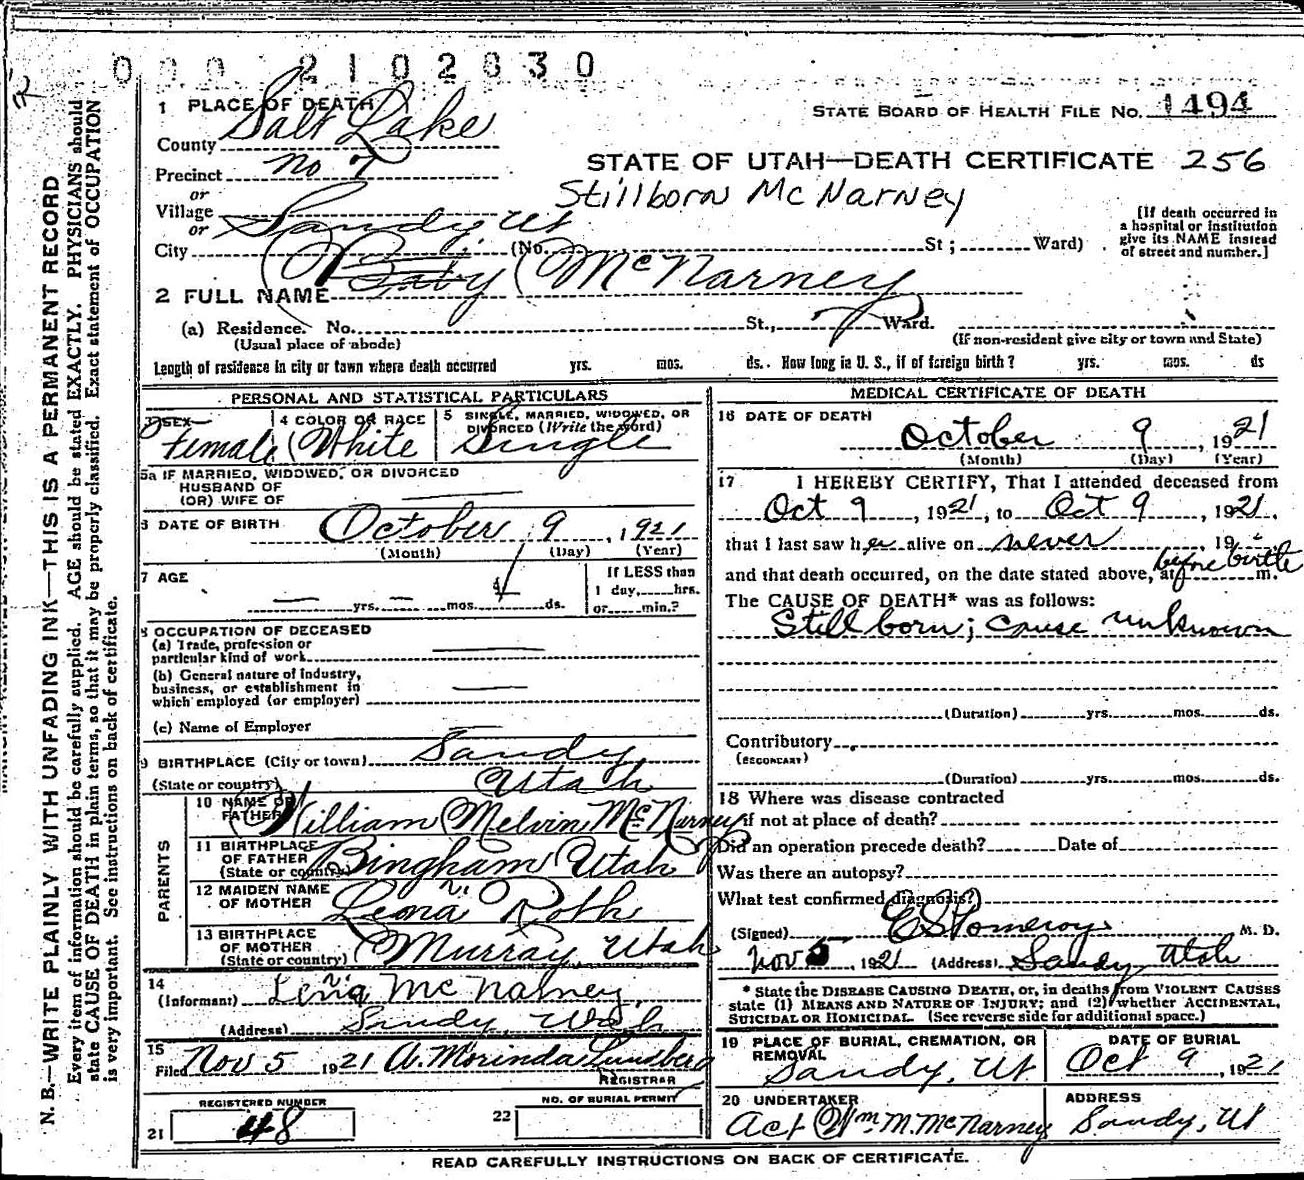 000 2102830
1 PLACE OF DEATH
STATE BOARD OF HEALTH FILE NO. 1494
County Salt Lake
STATE OF UTAH—DEATH CERTIFICATE 256
Precinct No 7
Stillborn McNarney
or
Village
or
City Sandy, Ut (No. St; Ward)
[If death occurred in
a hospital or institution
give its NAME instead
of street and number.]
2 FULL NAME Baby McNarney
(a) Residence. No. St., Ward.
(Usual place of abode)
(If non-resident give city or town and State)
Length of residence in city or town where death occurred yrs. mos. ds. How long in U. S., if of foreign birth? yrs. mos. ds
PERSONAL AND STATISTICAL PARTICULARS
3 SEX Female
4 COLOR OR RACE White
5 SINGLE, MARRIED, WIDOWED, OR
DIVORCED (Write the word) Single
5a IF MARRIED, WIDOWED, OR DIVORCED
HUSBAND OF
(OR) WIFE OF
6 DATE OF BIRTH October 9, 1921
(Month) (Day) (Year)
7 AGE
yrs. mos. ds.
If LESS than
1 day, hrs.
or min.?
8 OCCUPATION OF DECEASED
(a) Trade, profession or
particular kind of work
(b) General nature of Industry,
business, or establishment in
which employed (or employer)
(c) Name of Employer
9 BIRTHPLACE (City or town) Sandy
(State or country) Utah
PARENTS
10 NAME OF
FATHER William Melvin McNarney
11 BIRTHPLACE
OF FATHER
(State or country) Bingham Utah
12 MAIDEN NAME
OF MOTHER Lena Roth
13 BIRTHPLACE
OF MOTHER
(State or country) Murray Utah
14
(Informant) Lena McNarney
(Address) Sandy, Utah
15
Filed Nov 5 1921 A. Morinda Lundberg
REGISTRAR
REGISTERED NUMBER
21 48
NO. OF BURIAL PERMIT
22
MEDICAL CERTIFICATE OF DEATH
16 DATE OF DEATH
October 9, 1921
(Month) (Day) (Year)
17 I HEREBY CERTIFY, That I attended deceased from
Oct 9, 1921, to Oct 9, 1921,
that I last saw her alive on never, 19
and that death occurred, on the date stated above, at before birth m.
The CAUSE OF DEATH* was as follows:
Still born; cause unknown
(Duration) yrs. mos. ds.
Contributory
(SECONDARY)
(Duration) yrs. mos. ds.
18 Where was disease contracted
if not at place of death?
Did an operation precede death? Date of
Was there an autopsy?
What test confirmed diagnosis?
(Signed) E S Pomeroy M. D.
Nov 5, 1921 (Address) Sandy Utah
* State the DISEASE CAUSING DEATH, or, in deaths from VIOLENT CAUSES
state (1) MEANS AND NATURE OF INJURY; and (2) whether ACCIDENTAL,
SUICIDAL OR HOMICIDAL. (See reverse side for additional space.)
19 PLACE OF BURIAL, CREMATION, OR
REMOVAL
Sandy, Ut
DATE OF BURIAL
Oct 9, 1921
20 UNDERTAKER
Act Wm. M. McNarney
ADDRESS
Sandy, Ut
READ CAREFULLY INSTRUCTIONS ON BACK OF CERTIFICATE.
N. B.—WRITE PLAINLY WITH UNFADING INK—THIS IS A PERMANENT RECORD
Every item of information should be carefully supplied. AGE should be stated EXACTLY. PHYSICIANS should
state CAUSE OF DEATH in plain terms, so that it may be properly classified. Exact statement of OCCUPATION
is very important. See instructions on back of certificate.